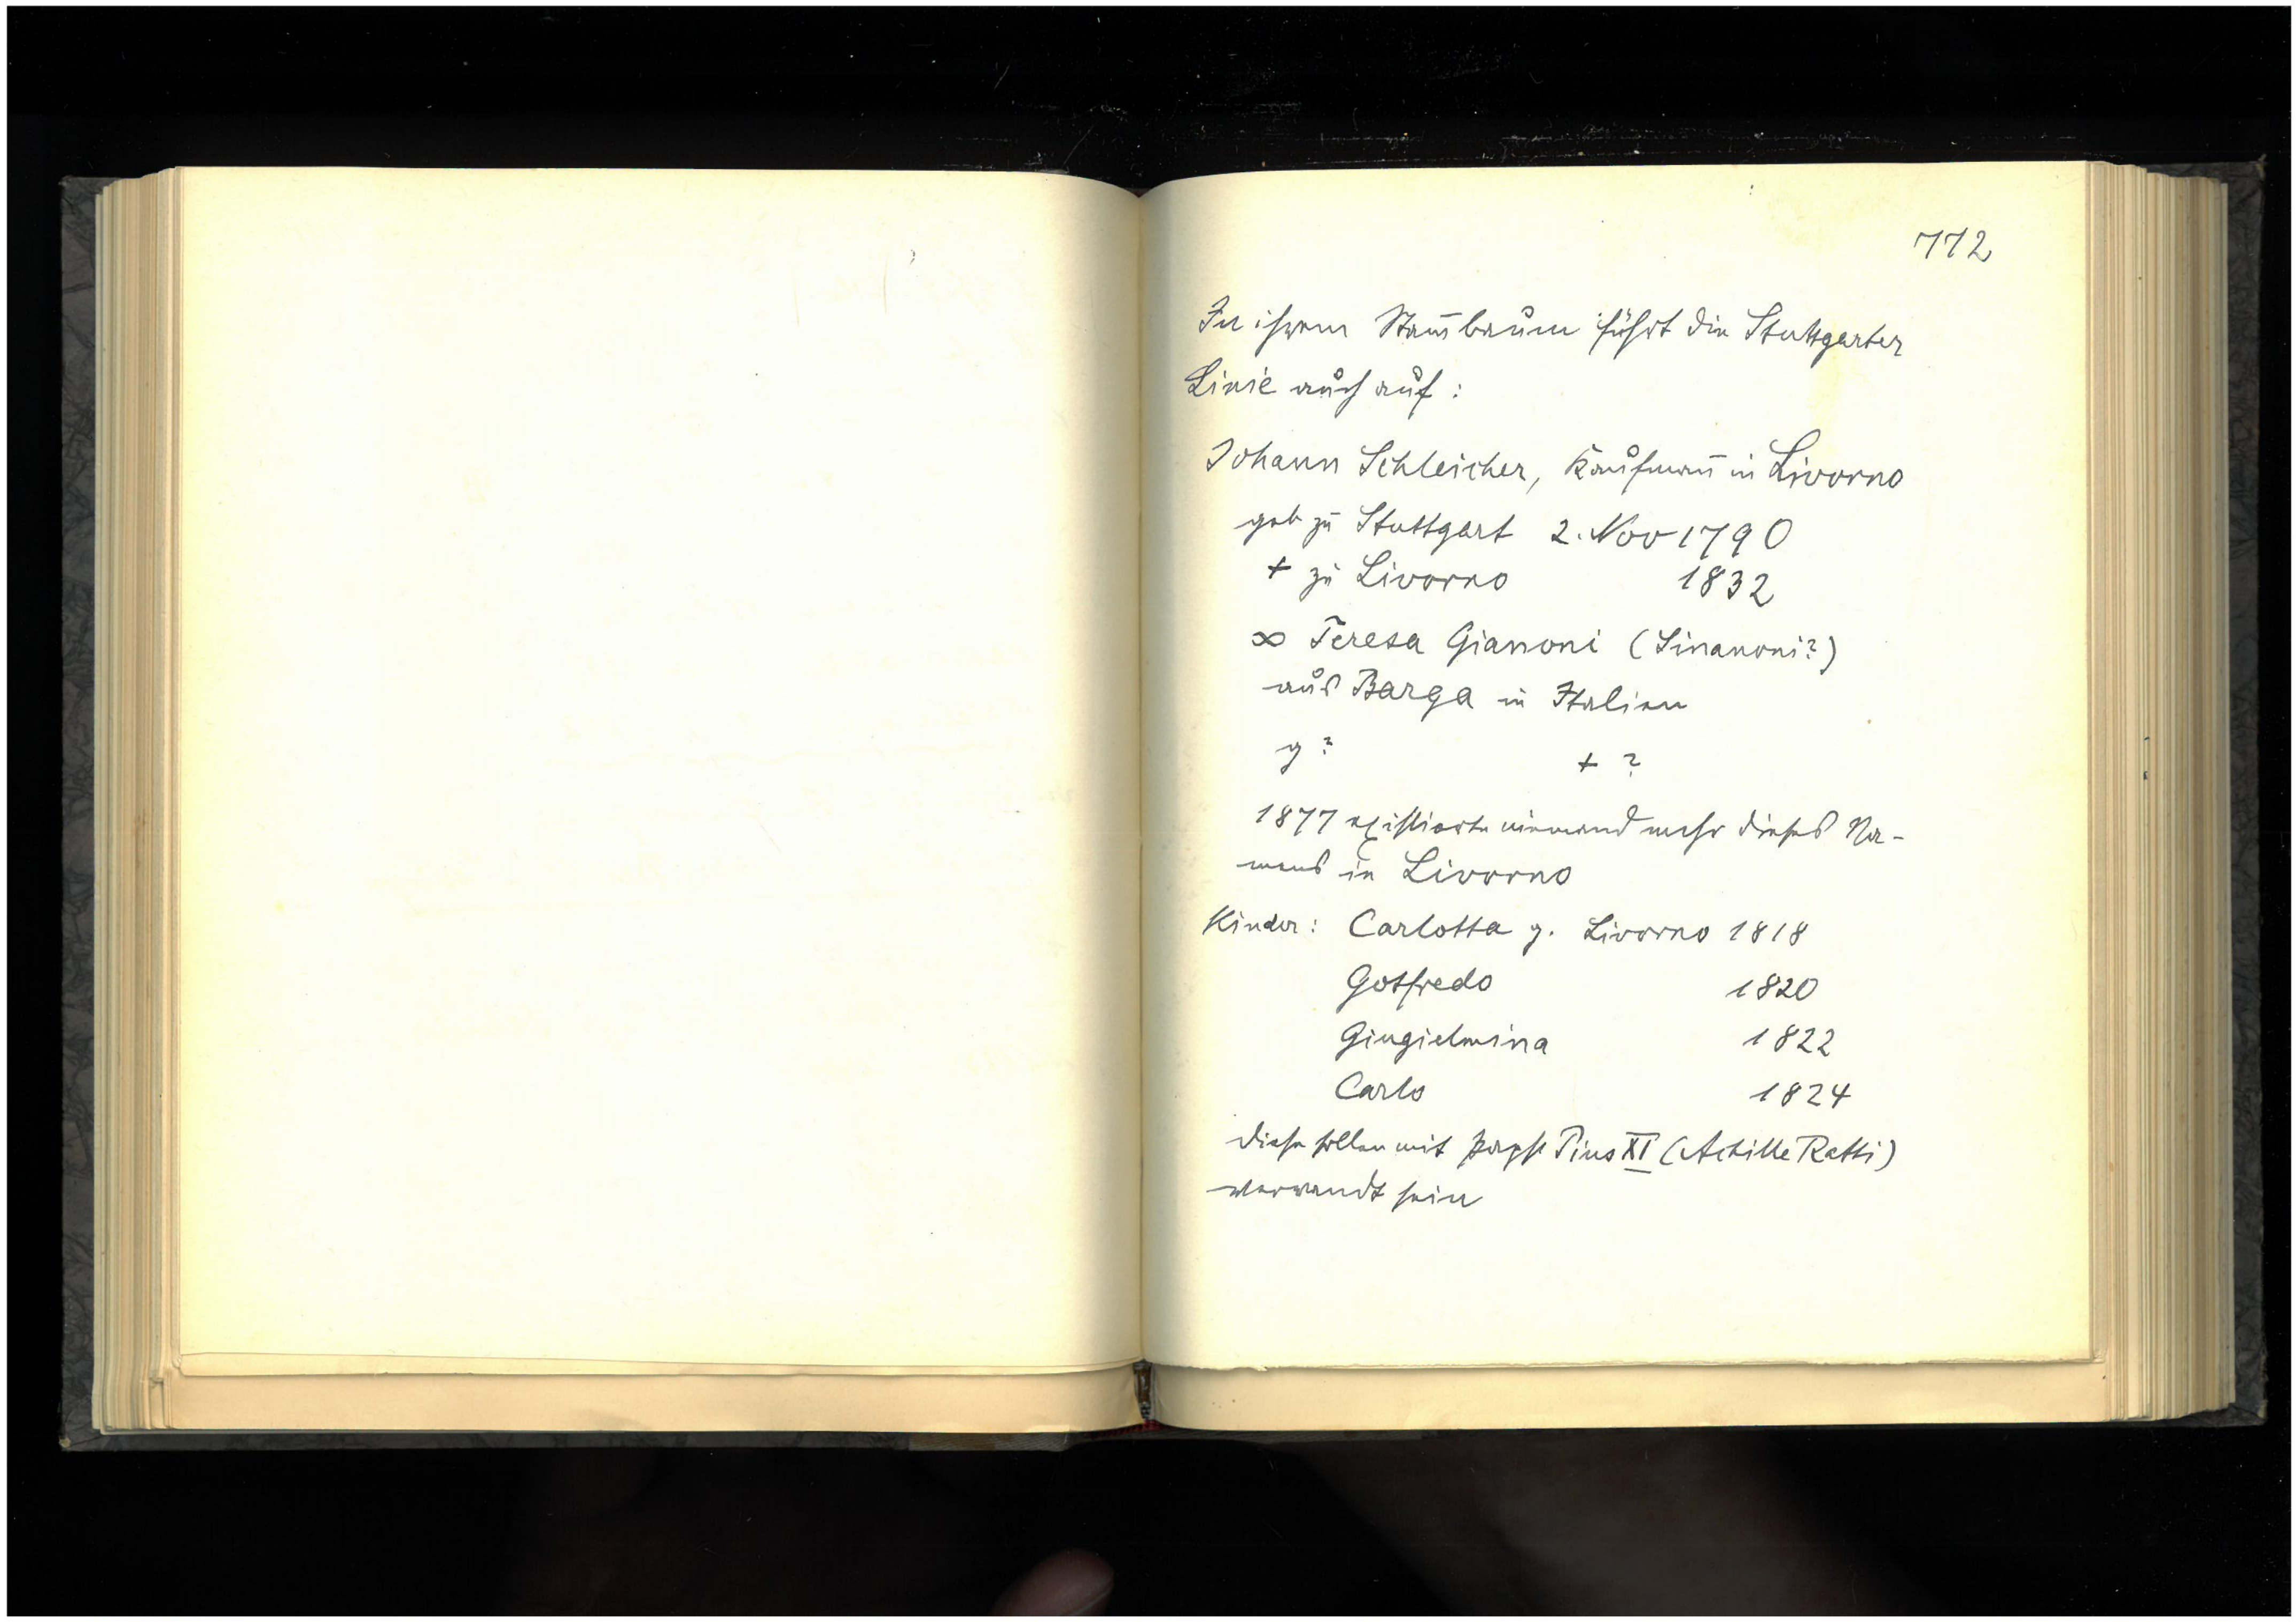 772
In ihrem Stam̅baum führt die Stuttgarter
Linie auch auf:
Johann Schleicher, Kaufman̅ in Livorno
geb zu Stuttgart 2. Nov 1790
+ zu Livorno 1832
∞ Teresa Gianoni (Sinanoni?)
aus Barga in Italien
g ? + ?
1877 existierte niemand mehr dieses Na-
mens in Livorno
Kinder: Carlotta g. Livorno 1818
Gotfredo 1820
Giugielmina 1822
Carlo 1824
diese sollen mit Papst Pius XI (Achille Ratti)
verwandt sein